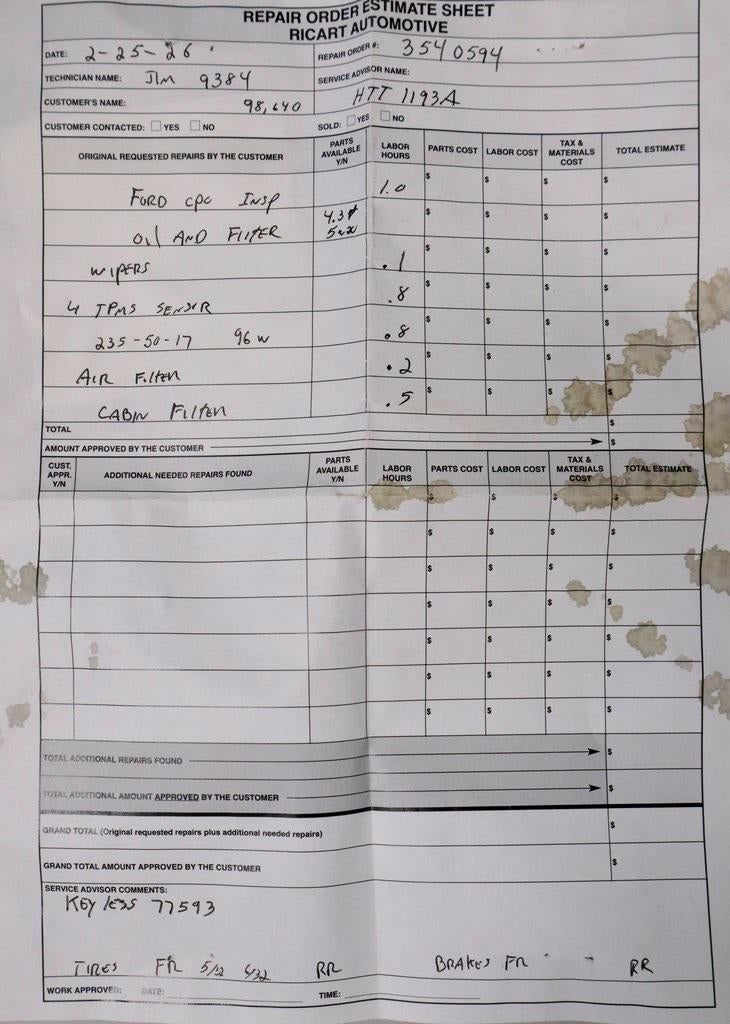 REPAIR ORDER ESTIMATE SHEET
RICART AUTOMOTIVE
DATE: 2-25-26 REPAIR ORDER #: 3540594
TECHNICIAN NAME: JLM 9384 SERVICE ADVISOR NAME:
CUSTOMER'S NAME: 98,640 HTT 1193A
CUSTOMER CONTACTED: YES NO SOLD: YES NO
ORIGINAL REQUESTED REPAIRS BY THE CUSTOMER PARTS AVAILABLE Y/N LABOR HOURS PARTS COST LABOR COST TAX & MATERIALS COST TOTAL ESTIMATE
FORD CPO INSP 1.0 $ $ $ $
OIl AND FIlTER 4.3 $ $ $ $
WIPERS .1 $ $ $ $
4 TPMS SENSOR .8 $ $ $ $
235-50-17 96W .8 $ $ $ $
AIR FIlTER .2 $ $ $ $
CABIN FIlTER .5 $ $ $ $
TOTAL $
AMOUNT APPROVED BY THE CUSTOMER $
CUST. APPR. Y/N ADDITIONAL NEEDED REPAIRS FOUND PARTS AVAILABLE Y/N LABOR HOURS PARTS COST LABOR COST TAX & MATERIALS COST TOTAL ESTIMATE
$ $ $ $
$ $ $ $
$ $ $ $
$ $ $ $
$ $ $ $
$ $ $ $
$ $ $ $
TOTAL ADDITIONAL REPAIRS FOUND $
TOTAL ADDITIONAL AMOUNT APPROVED BY THE CUSTOMER $
GRAND TOTAL (Original requested repairs plus additional needed repairs) $
GRAND TOTAL AMOUNT APPROVED BY THE CUSTOMER $
SERVICE ADVISOR COMMENTS:
KEYlESS 77593
TIRES FR 5/32 4/32 RR BRAKES FR RR
WORK APPROVED: DATE: TIME: